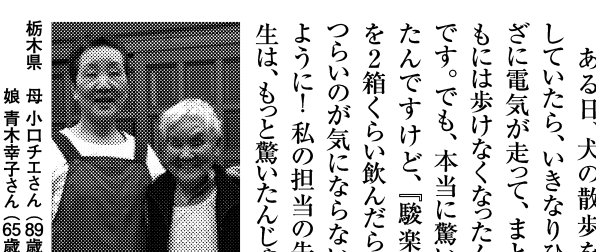 ある日、犬の散歩を
していたら、いきなりひ
ざに電気が走って、まと
もには歩けなくなったん
です。でも、本当に驚い
たんですけど、『駿楽
を2箱くらい飲んだら
つらいのが気にならない
ように！私の担当の先
生は、もっと驚いたんじゃ
栃木県　母 小口チエさん（89歳
娘 青木幸子さん（65歳